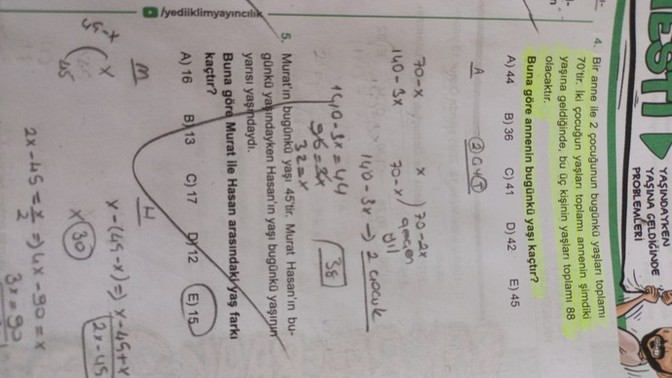 TESTİ
YAŞINDAYKEN
YAŞINA GELDİĞİNDE
PROBLEMLERİ
4. Bir anne ile 2 çocuğunun bugünkü yaşları toplamı
70'tir. İki çocuğun yaşları toplamı annenin şimdiki
yaşına geldiğinde, bu üç kişinin yaşları toplamı 88
olacaktır.
Buna göre annenin bugünkü yaşı kaçtır?
A) 44 B) 36 C) 41 D) 42 E) 45
A
70-x x
140-3x 70-x
70-2x
geçen
yıl
140-3x → 2 çocuk
140-3x=44
96=3x
32=x
38
5. Murat'ın bugünkü yaşı 45'tir. Murat Hasan'ın bu-
günkü yaşındayken Hasan'ın yaşı bugünkü yaşının
yarısı yaşındaydı.
Buna göre Murat ile Hasan arasındaki yaş farkı
kaçtır?
A) 16 B) 13 C) 17 D) 12 E) 15
M H
x
45
x-(45-x) ⇒ x-45+x
2x-45
x 30
2x-45=x/2 ⇒ 4x-90=x
3x=90
/yediiklimyayıncılık